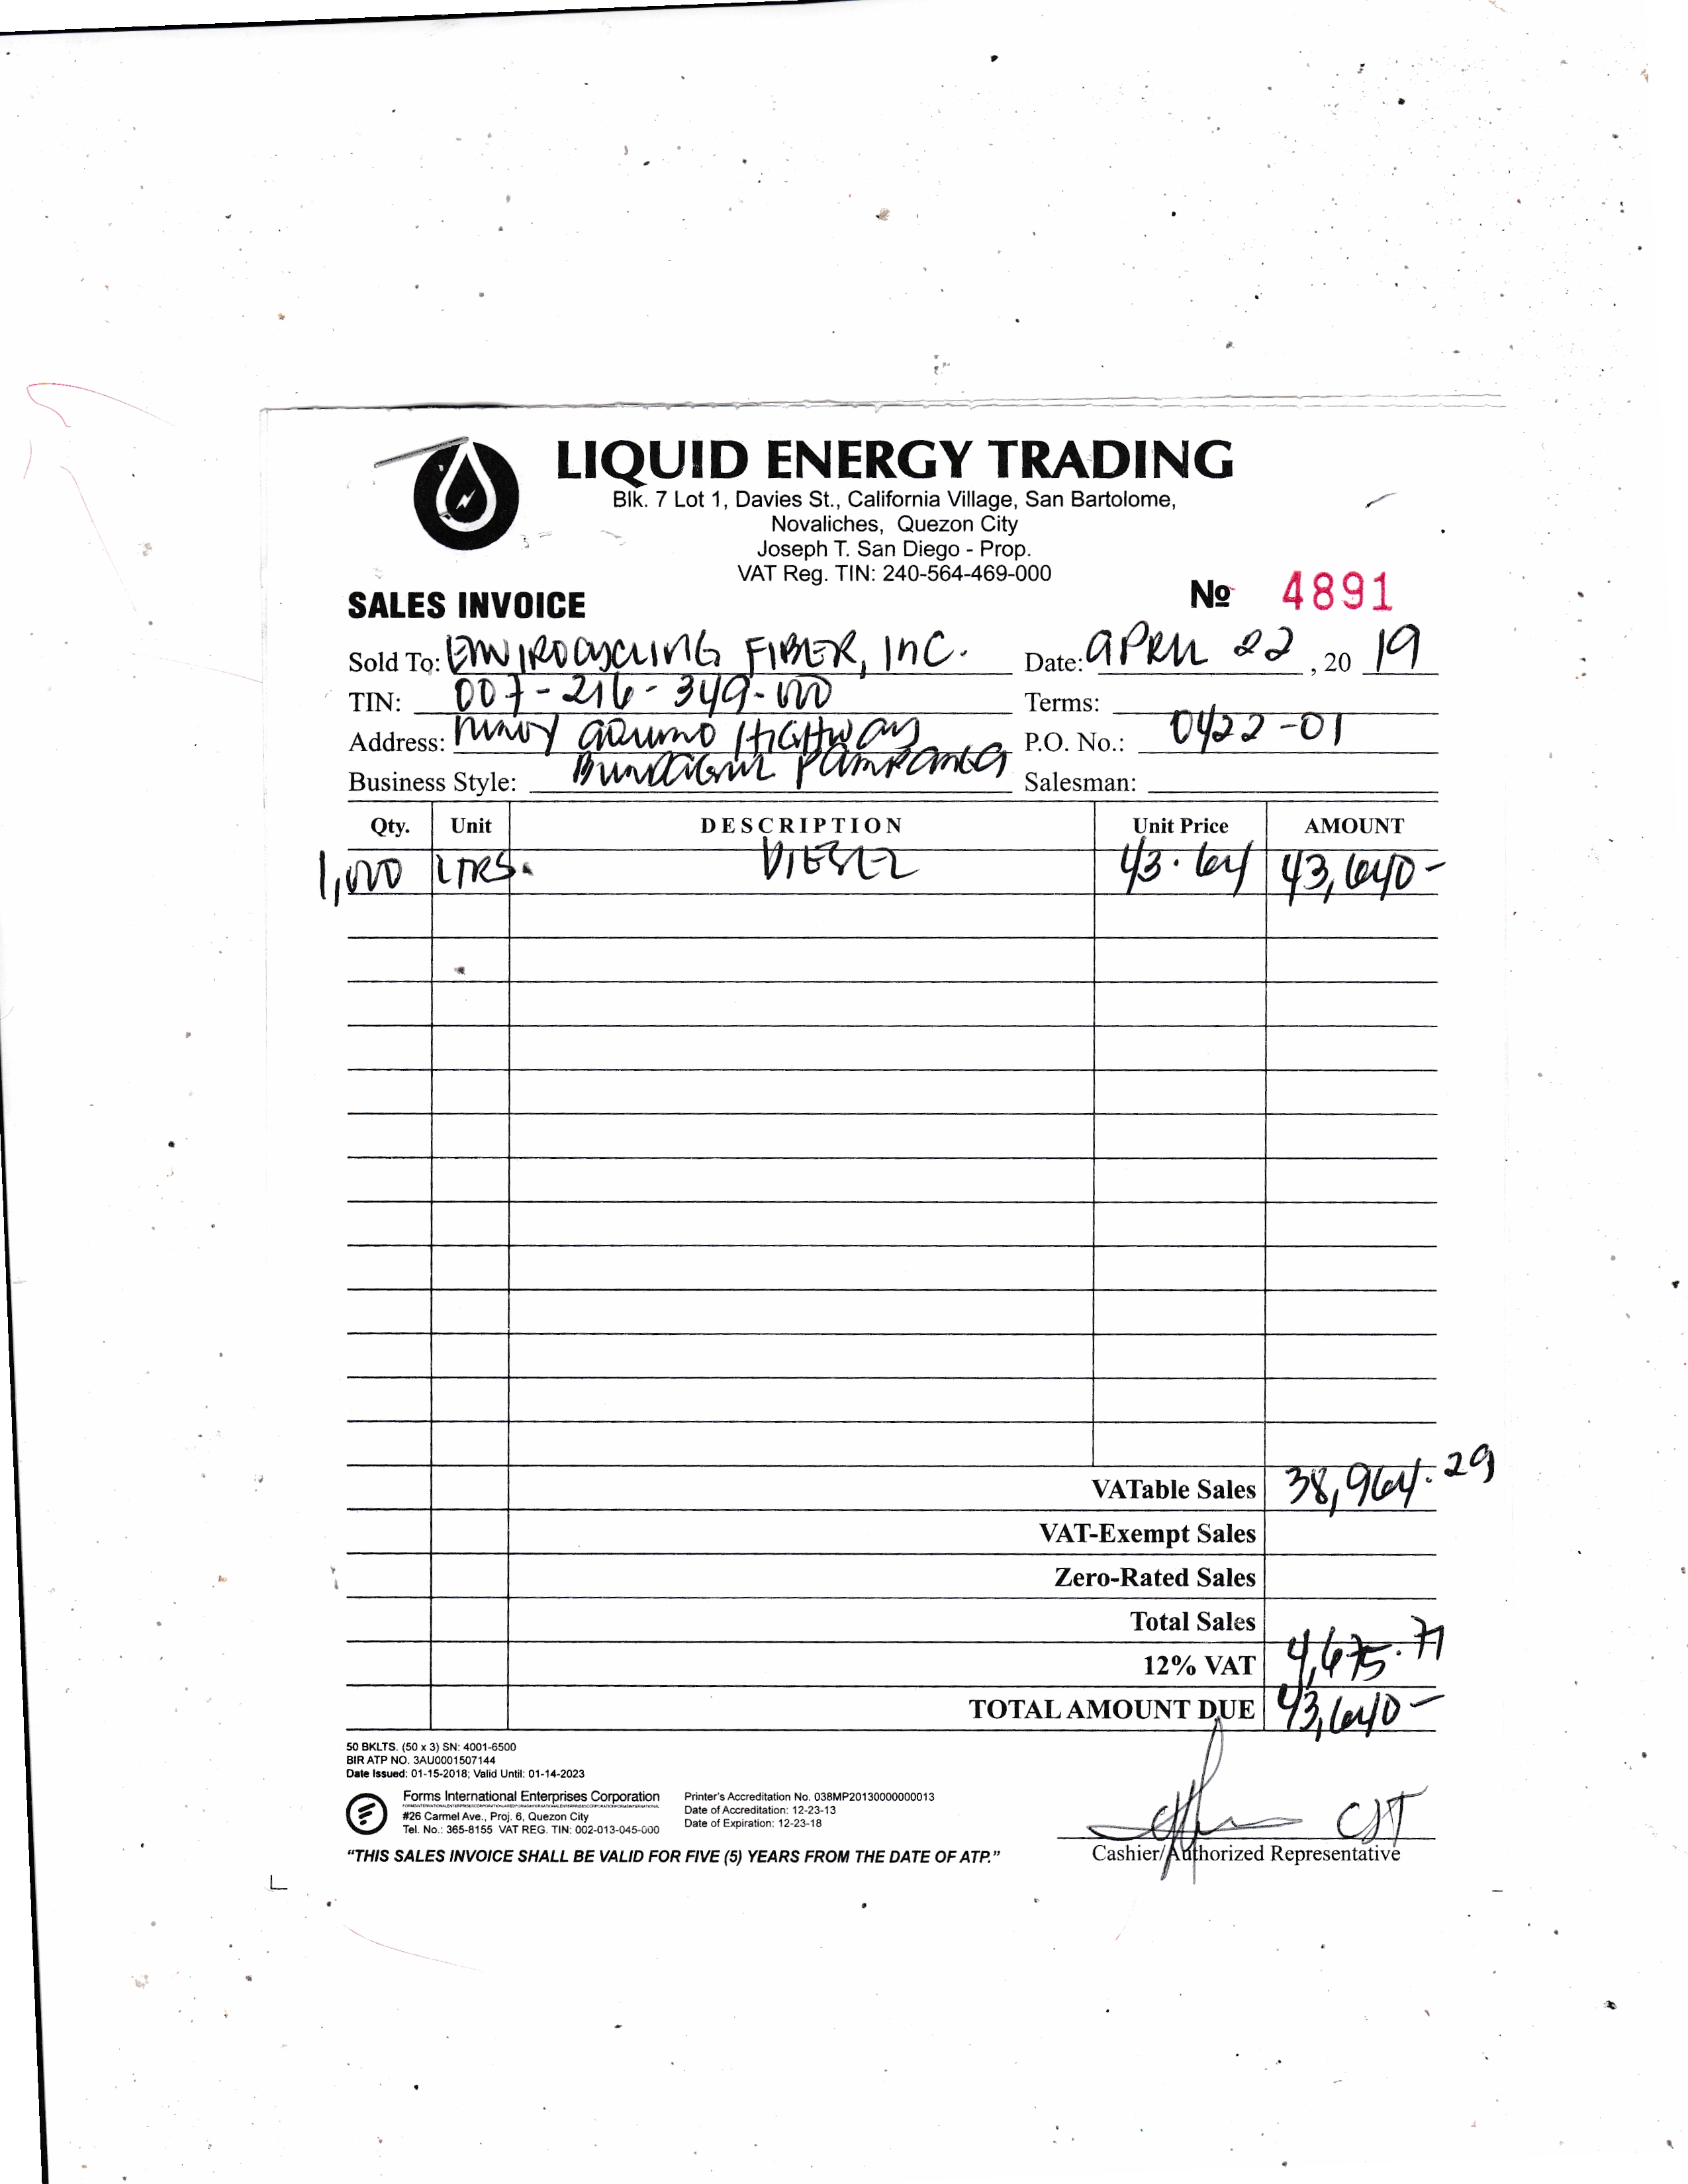 LIQUID ENERGY TRADING
Blk. 7 Lot 1, Davies St., California Village, San Bartolome,
Novaliches, Quezon City
Joseph T. San Diego - Prop.
VAT Reg. TIN: 240-564-469-000
SALES INVOICE
№ 4891
Sold To: ENVIROCYCLING FIBER, INC. Date: APRIL 22, 20 19
TIN: 007-216-349-000 Terms:
Address: HIGHWAY P.O. No.: 0422-01
PAMPANGA
Business Style: Salesman:
Qty. Unit DESCRIPTION Unit Price AMOUNT
1,000 LTRS. DIESEL 43.64 43,640-
VATable Sales 38,964.29
VAT-Exempt Sales
Zero-Rated Sales
Total Sales
12% VAT 4,675.71
TOTAL AMOUNT DUE 43,640-
50 BKLTS. (50 x 3) SN: 4001-6500
BIR ATP NO. 3AU0001507144
Date Issued: 01-15-2018; Valid Until: 01-14-2023
Forms International Enterprises Corporation
#26 Carmel Ave., Proj. 6, Quezon City
Tel. No.: 365-8155 VAT REG. TIN: 002-013-045-000
Printer's Accreditation No. 038MP20130000000013
Date of Accreditation: 12-23-13
Date of Expiration: 12-23-18
"THIS SALES INVOICE SHALL BE VALID FOR FIVE (5) YEARS FROM THE DATE OF ATP."
Cashier/Authorized Representative